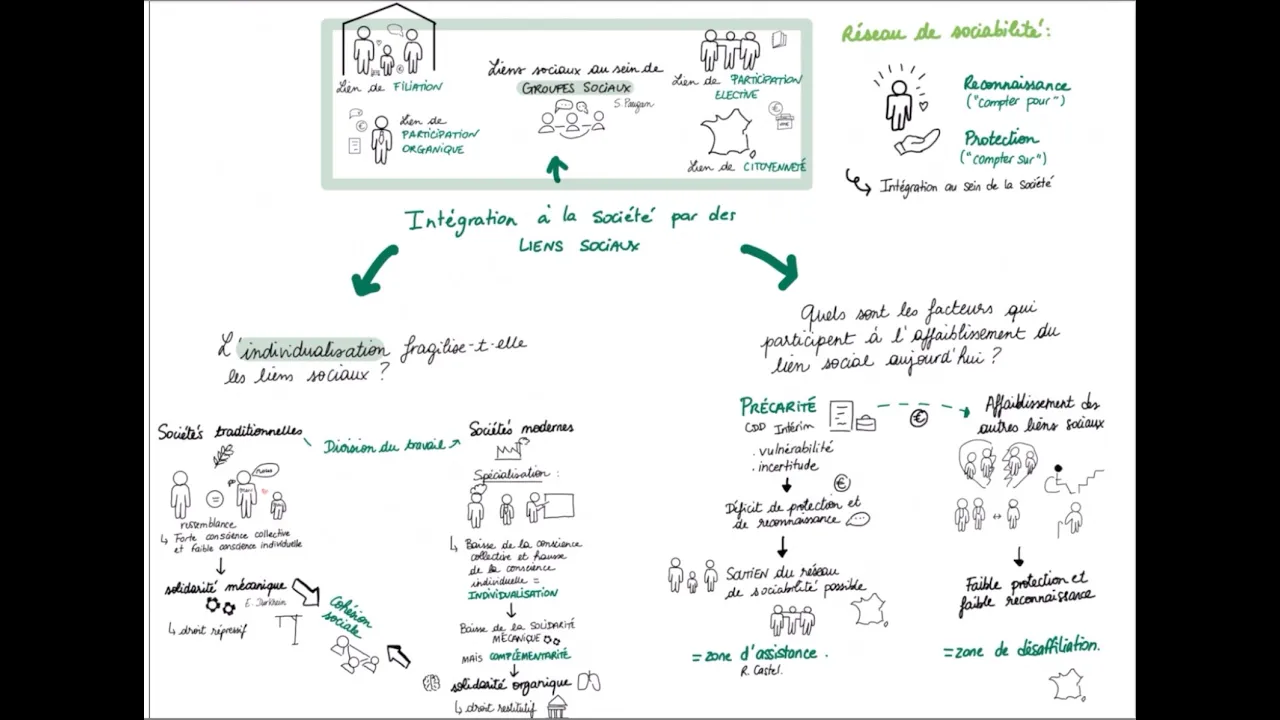 Lien de FILIATION
Lien de
PARTICIPATION
ORGANIQUE
Liens sociaux au sein de
GROUPES SOCIAUX
S. Paugam
Lien de PARTICIPATION
ELECTIVE
Lien de CITOYENNETÉ
Réseau de sociabilité :
Reconnaissance
("compter pour")
Protection
("compter sur")
Intégration au sein de la société
Intégration à la société par des
LIENS SOCIAUX
L'individualisation fragilise-t-elle
les liens sociaux ?
Sociétés traditionnelles
Division du travail
Sociétés modernes
ressemblance
Forte conscience collective
et faible conscience individuelle
solidarité mécanique
E. Durkheim
droit répressif
Cohésion
sociale
Spécialisation :
Baisse de la conscience
collective et hausse
de la conscience
individuelle =
INDIVIDUALISATION
Baisse de la SOLIDARITÉ
MÉCANIQUE
MAIS COMPLÉMENTARITÉ
solidarité organique
droit restitutif
Quels sont les facteurs qui
participent à l'affaiblissement du
lien social aujourd'hui ?
PRÉCARITÉ
CDD Intérim
. vulnérabilité
. incertitude
Déficit de protection et
de reconnaissance
SOUTIEN du réseau
de sociabilité possible
= zone d'assistance .
R. Castel.
Affaiblissement des
autres liens sociaux
Faible protection et
faible reconnaissance
= zone de désaffiliation.